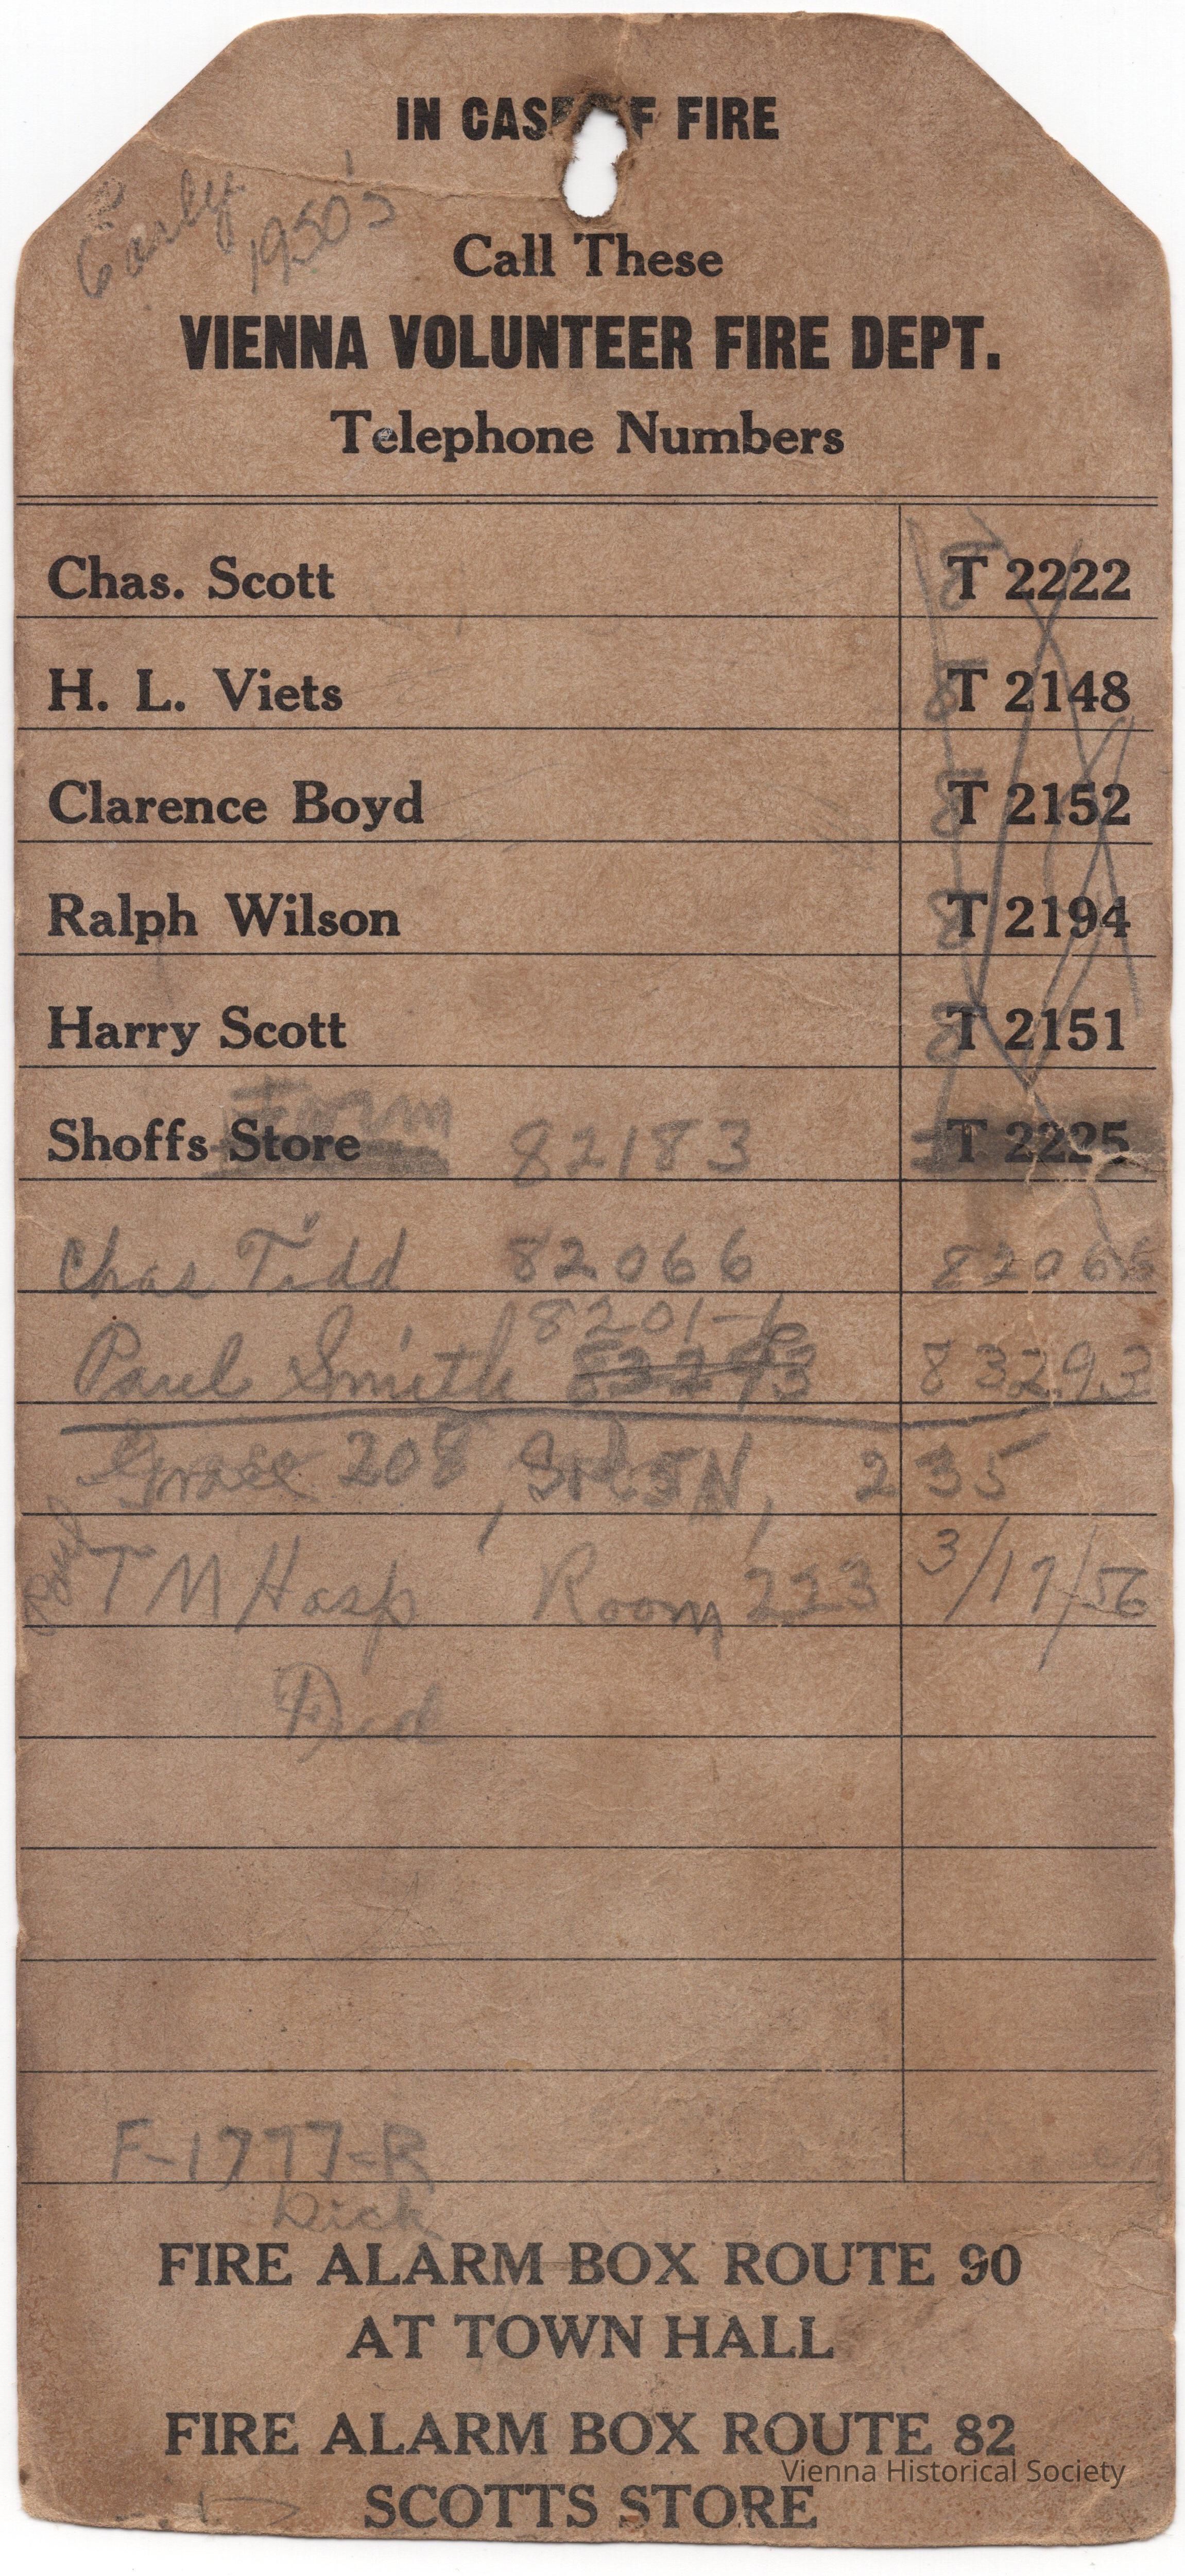 IN CASE OF FIRE
Early 1950's
Call These
VIENNA VOLUNTEER FIRE DEPT.
Telephone Numbers
Chas. Scott 8 T 2222
H. L. Viets 8 T 2148
Clarence Boyd 8 T 2152
Ralph Wilson 8 T 2194
Harry Scott 8 T 2151
Farm
Shoffs Store 82183 T 2225
Chas Tidd 82066 82066
8201-6
Paul Smith 83293 83293
Grace 208, N, 235
Paul T M Hosp Room 223 3/17/56
Fred
F-1777-R
Dick
FIRE ALARM BOX ROUTE 90
AT TOWN HALL
FIRE ALARM BOX ROUTE 82
Vienna Historical Society
SCOTTS STORE